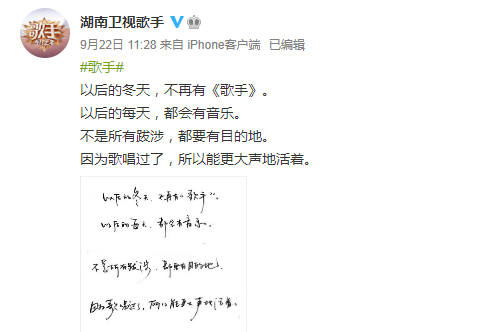 湖南卫视歌手
9月22日 11:28 来自 iPhone客户端 已编辑
#歌手#
以后的冬天，不再有《歌手》。
以后的每天，都会有音乐。
不是所有跋涉，都要有目的地。
因为歌唱过了，所以能更大声地活着。
以后的冬天，不再有《歌手》。
以后的每天，都会有音乐。
不是所有跋涉，都要有目的地。
因为歌唱过了，所以能更大声地活着。